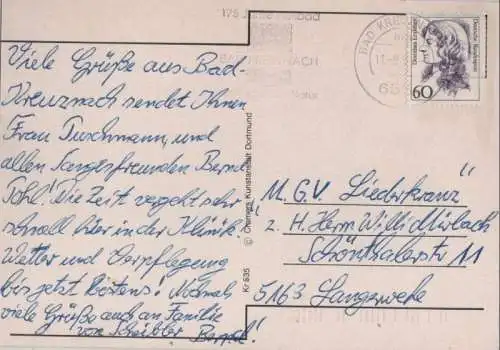 Viele Grüße aus Bad-
Kreuznach sendet Ihnen
Frau Tuschmann, und
allen Sangesfreunden Bernd
Pohl! Die Zeit vergeht sehr
schnell hier in der Klinik.
Wetter und Verpflegung
bis jetzt bestens! Nochmals
viele Grüße auch an Familie
von Scheibler Bernd!
175 Jahre
BAD KREUZNACH
655
Deutsche Bundespost
Dorothea Erxleben
60
© Cramers Kunstanstalt Dortmund
Kr 635
"M.G.V. Liederkranz"
z. H. Herrn Willi Mirbach
Schönthalerstr 11
5163 Langerwehe